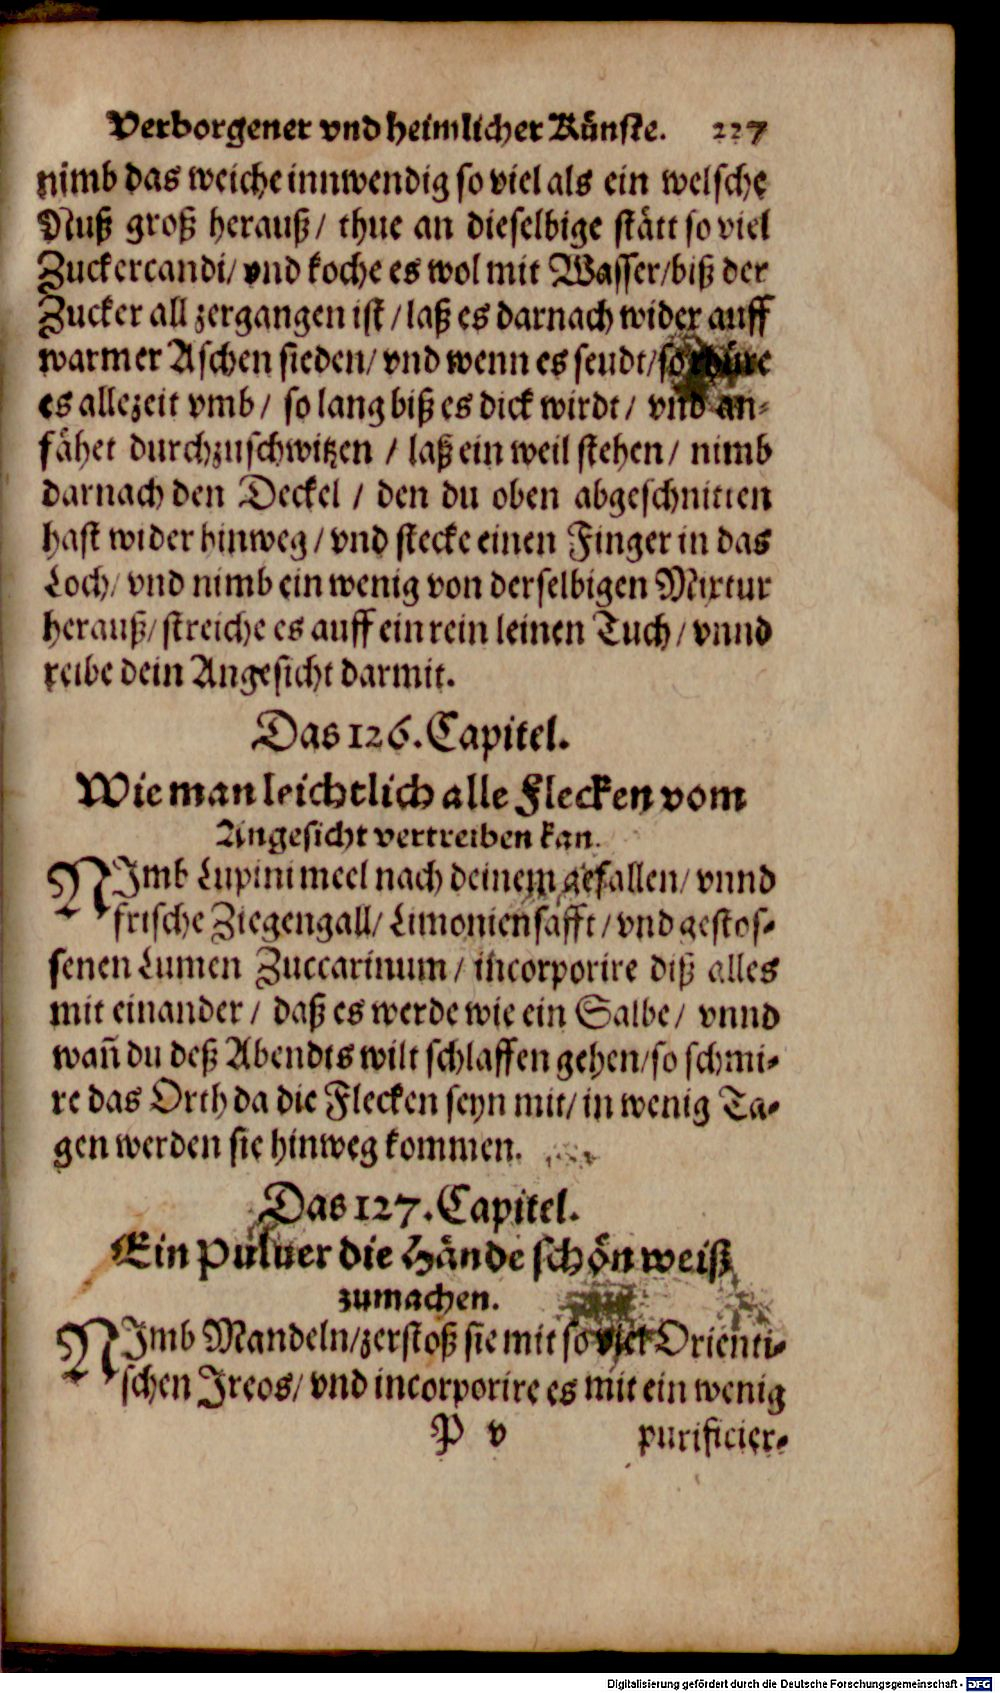 Verborgener vnd heimlicher Künste. 227
nimb das weiche innwendig so viel als ein welsche
Nuß groß herauß/ thue an dieselbige stätt so viel
Zuckercandi/ vnd koche es wol mit Wasser/ biß der
Zucker all zergangen ist / laß es darnach wider auff
warmer Aschen sieden/ vnd wenn es seudt/ so rhüre
es allezeit vmb / so lang biß es dick wirdt / vnd an-
fähet durchzuschwitzen / laß ein weil stehen / nimb
darnach den Deckel / den du oben abgeschnitten
hast wider hinweg / vnd stecke einen Finger in das
Loch/ vnd nimb ein wenig von derselbigen Mixtur
herauß/ streiche es auff ein rein leinen Tuch / vnnd
reibe dein Angesicht darmit.
Das 126. Capitel.
Wie man leichtlich alle Flecken vom
Angesicht vertreiben kan.
NImb Lupini meel nach deinem gefallen/ vnnd
frische Ziegengall/ Limoniensafft / vnd gestos-
senen Lumen Zuccarinum / incorporire diß alles
mit einander / daß es werde wie ein Salbe / vnnd
wañ du deß Abendts wilt schlaffen gehen/ so schmi-
re das Orth da die Flecken seyn mit/ in wenig Ta-
gen werden sie hinweg kommen.
Das 127. Capitel.
Ein Puluer die Hände schön weiß
zumachen.
NImb Mandeln/ zerstoß sie mit so viel Orienti-
schen Ireos/ vnd incorporire es mit ein wenig
P v purificier-
Digitalisierung gefördert durch die Deutsche Forschungsgemeinschaft - DFG